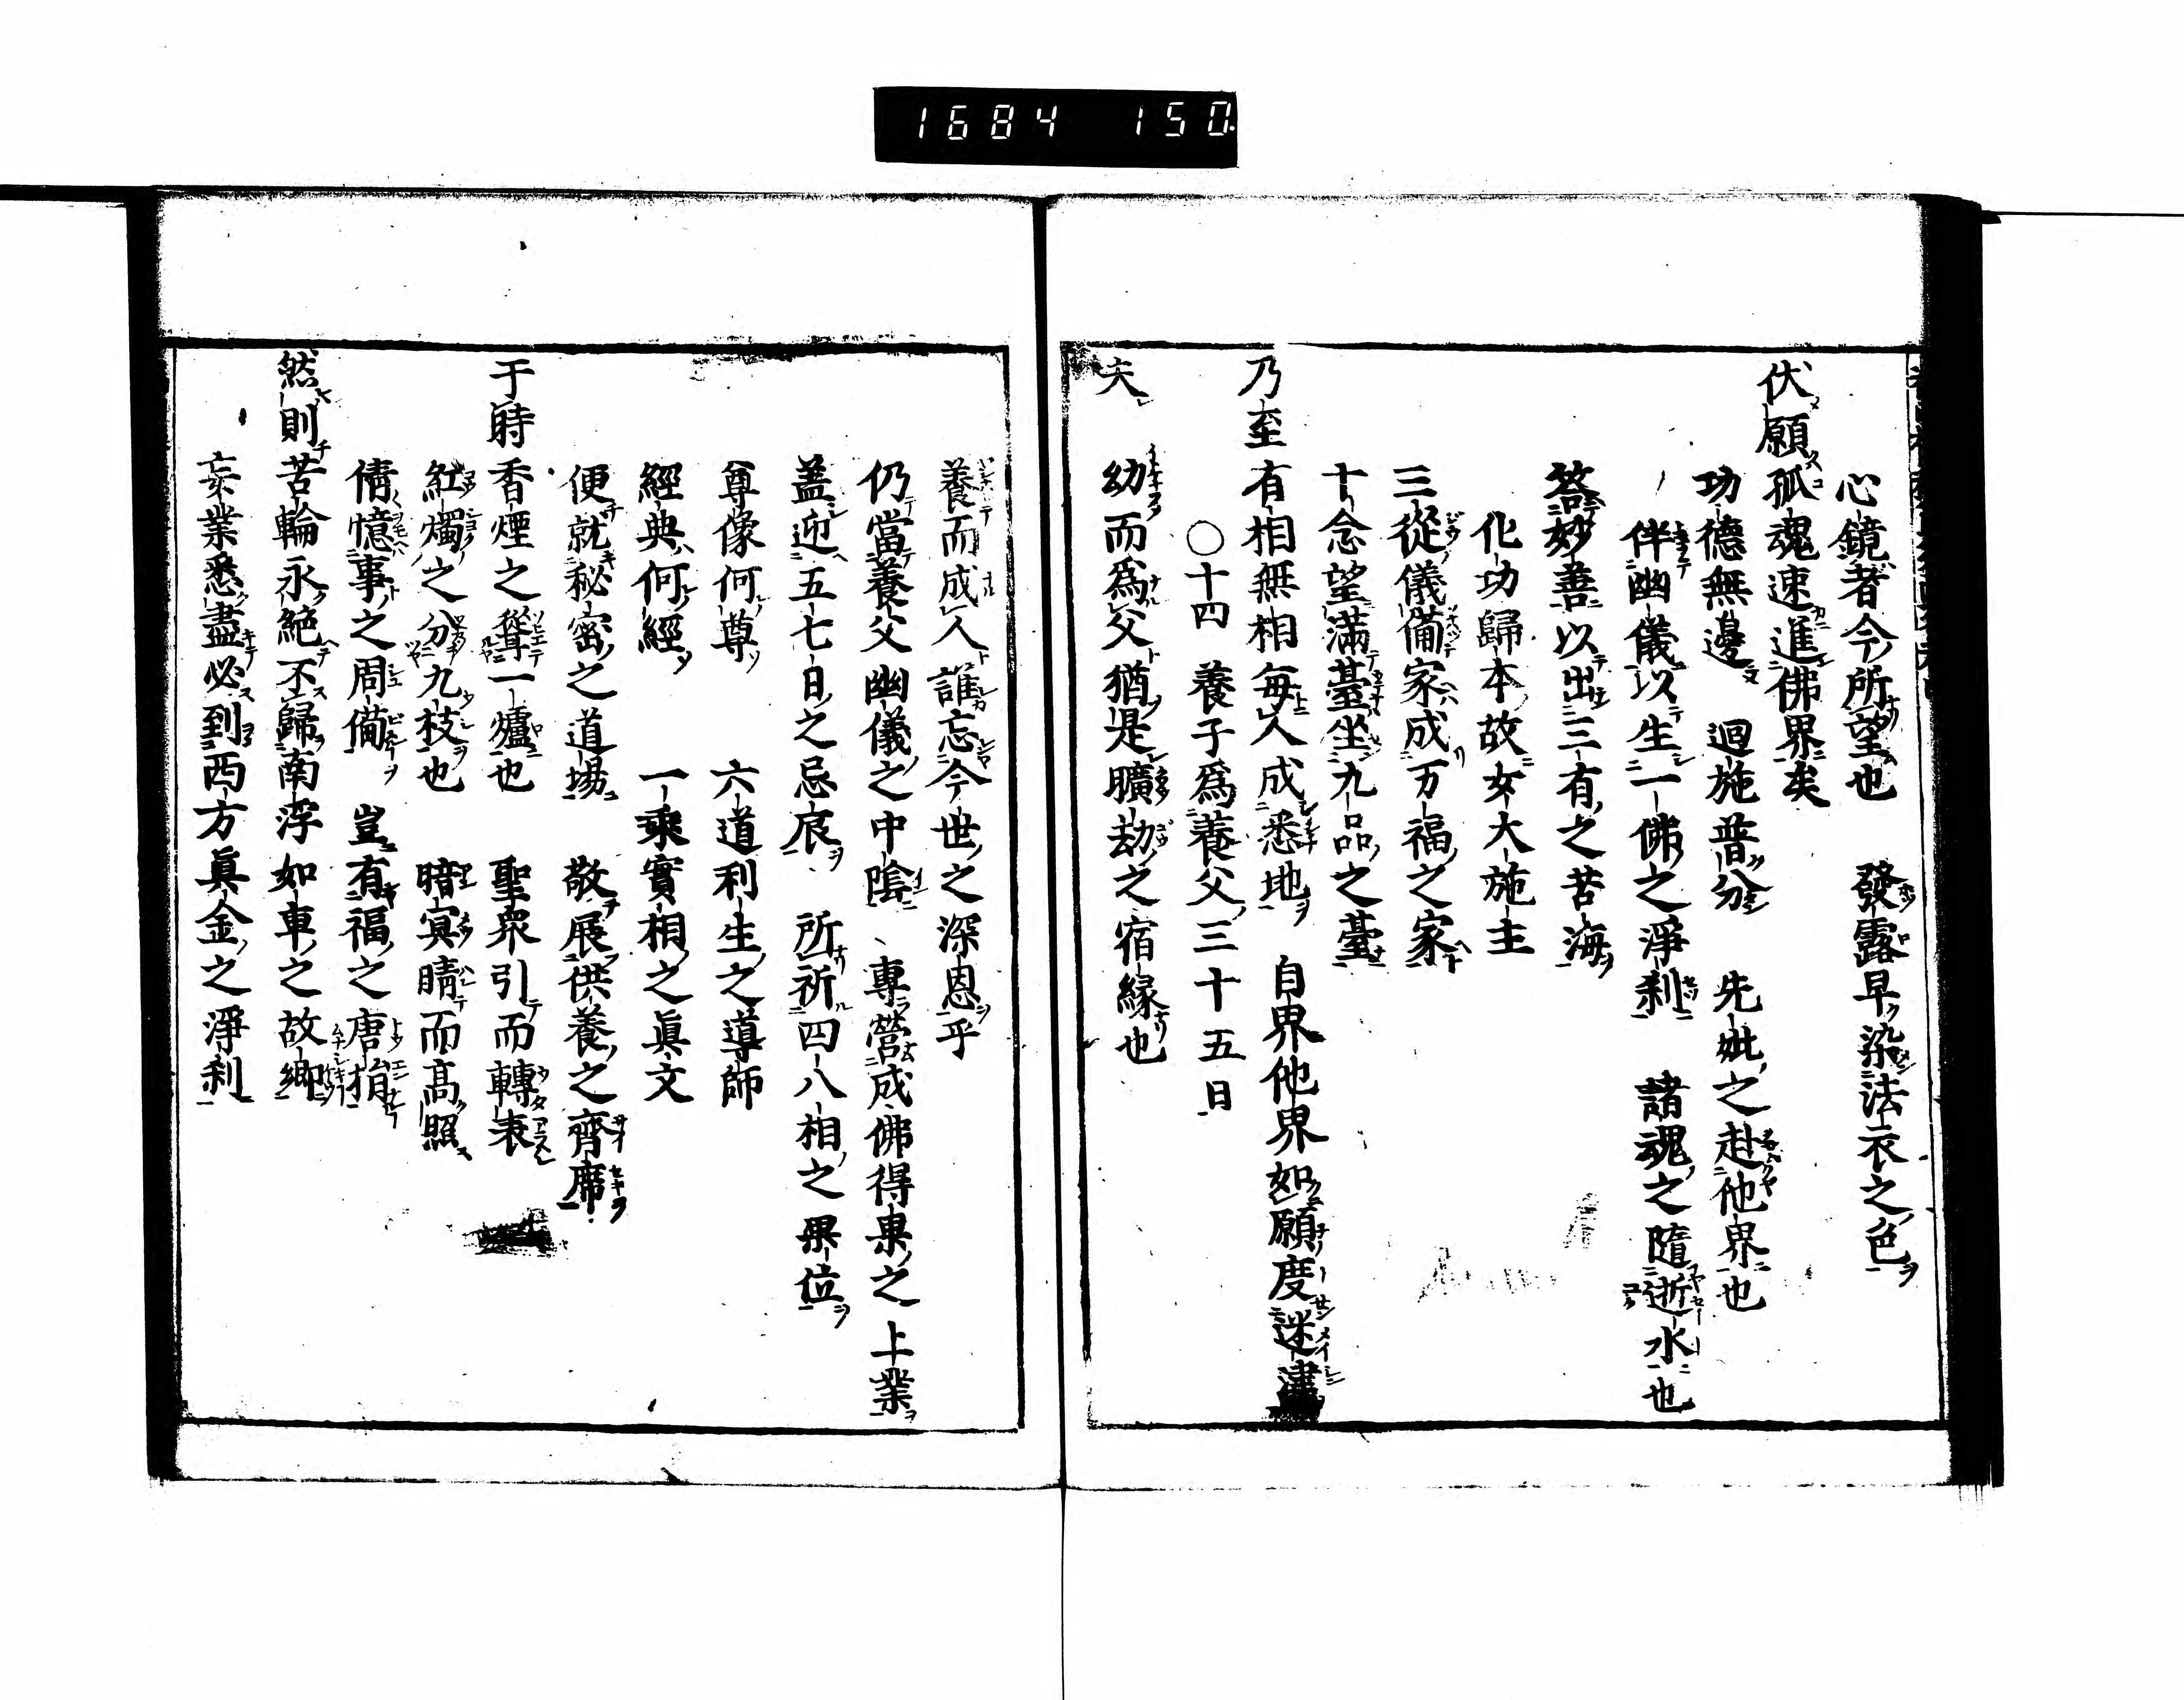 1684 150.
心鏡者今所望也 發露早染法衣之色
伏願孤魂速進佛界矣
功德無邊 迴施普分 先妣之赴他界也
伴幽儀以生一佛之淨刹 諸魂之隨逝水也
答妙善以出三有之苦海
化功歸本故女大施主
三從儀備家成万福之家
十念望滿臺坐九品之臺
乃至有相無相每人成悉地 自界他界如願度迷津
○十四 養子爲養父三十五日
夫 幼而爲父猶是曠劫之宿緣也
養而成人誰忘今世之深恩乎
仍當養父幽儀之中陰 專營成佛得果之上業
盖迎五七日之忌辰 所祈四八相之果位
尊像何尊 六道利生之導師
經典何經 一乘實相之眞文
便就秘密之道場 敬展供養之齊席
于時香煙之聳一爐也 聖衆引而轉袁
紅燭之分九枝也 暗冥晴而高照
倩憶事之周備 豈有福之唐捐
然則苦輪永絕不歸南浮如車之故鄉
妄業悉盡必到西方眞金之淨刹